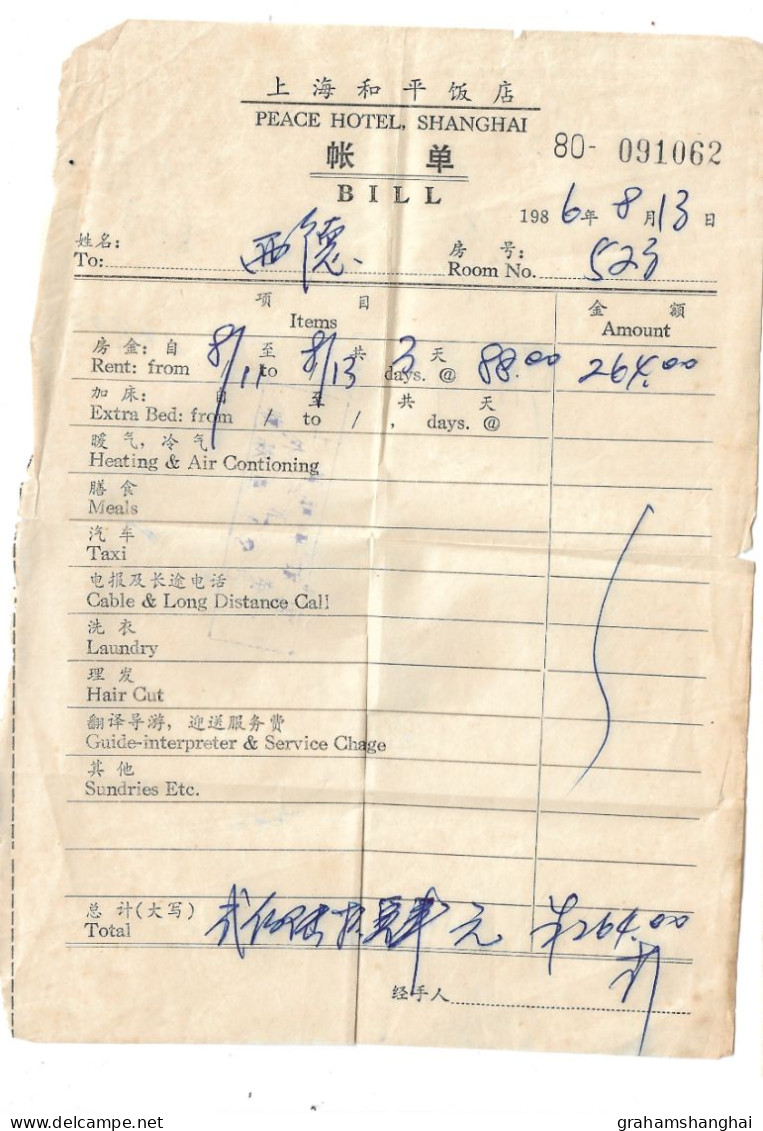 上海和平饭店
PEACE HOTEL, SHANGHAI
帐 单
80- 091062
BILL
1986年8月13日
姓名: 西德. 房号: 523
To: Room No.
项 目 金 额
Items Amount
房金: 自 8/11 至 8/13 共 3 天 88.00 264.00
Rent: from to days. @
加床: 自 至 共 天
Extra Bed: from / to / , days. @
暖气, 冷气
Heating & Air Contioning
膳食
Meals
汽车
Taxi
电报及长途电话
Cable & Long Distance Call
洗衣
Laundry
理发
Hair Cut
翻译导游, 迎送服务费
Guide-interpreter & Service Chage
其他
Sundries Etc.
总 计(大写) 元 ¥264.00
Total
经手人
grahamshanghai